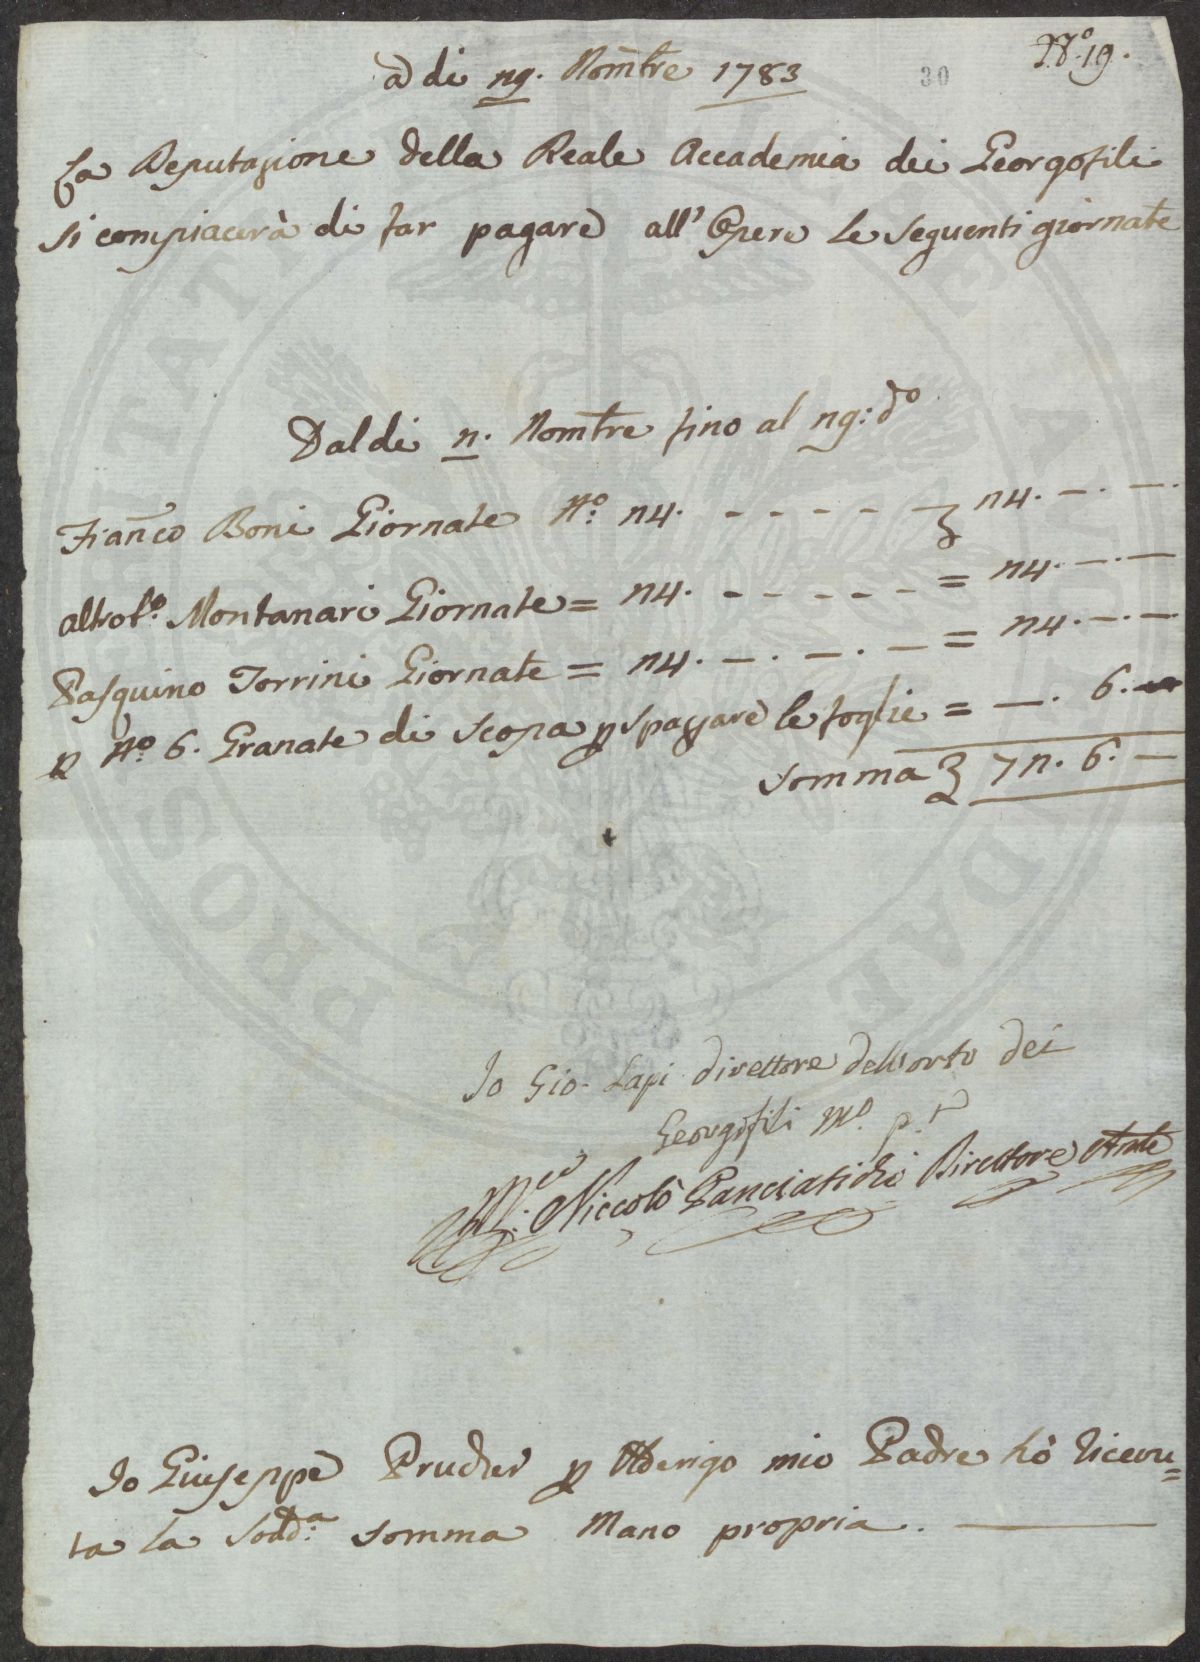 N.º 19.
30
a di 29. Nombre 1783
La Deputazione della Reale Accademia dei Georgofili
si compiacerà di far pagare all'Opere le seguenti giornate
Dal di 2. Nombre fino al 29: do
Franco Boni Giornate No. 24. - - - - - 24. —. —.
altroto. Montanari Giornate = 24. - - - - - = 24. —. —
Pasquino Torrini Giornate = 24. —. —. — = 24. —. —.
p No. 6. Granate di Scopa p Spazzare le foglie = —. 6. —
Somma 72. 6. —
Io Gio. Lapi direttore dell'orto dei
Georgofili Mo. p.
Niccolò Panciatichi Direttore
Io Giuseppe Prucher p Arrigo mio Padre hò ricevu=
ta la Sodda. Somma Mano propria. —